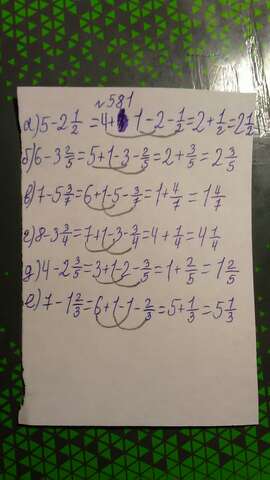 №581
а) 5-2 1/2 =4+1-2-1/2=2+1/2=2 1/2
б) 6-3 2/5=5+1-3-2/5=2+3/5=2 3/5
в) 7-5 3/7=6+1-5-3/7=1+4/7=1 4/7
г) 8-3 3/4=7+1-3-3/4=4+1/4=4 1/4
д) 4-2 3/5=3+1-2-3/5=1+2/5=1 2/5
е) 7-1 2/3=6+1-1-2/3=5+1/3=5 1/3